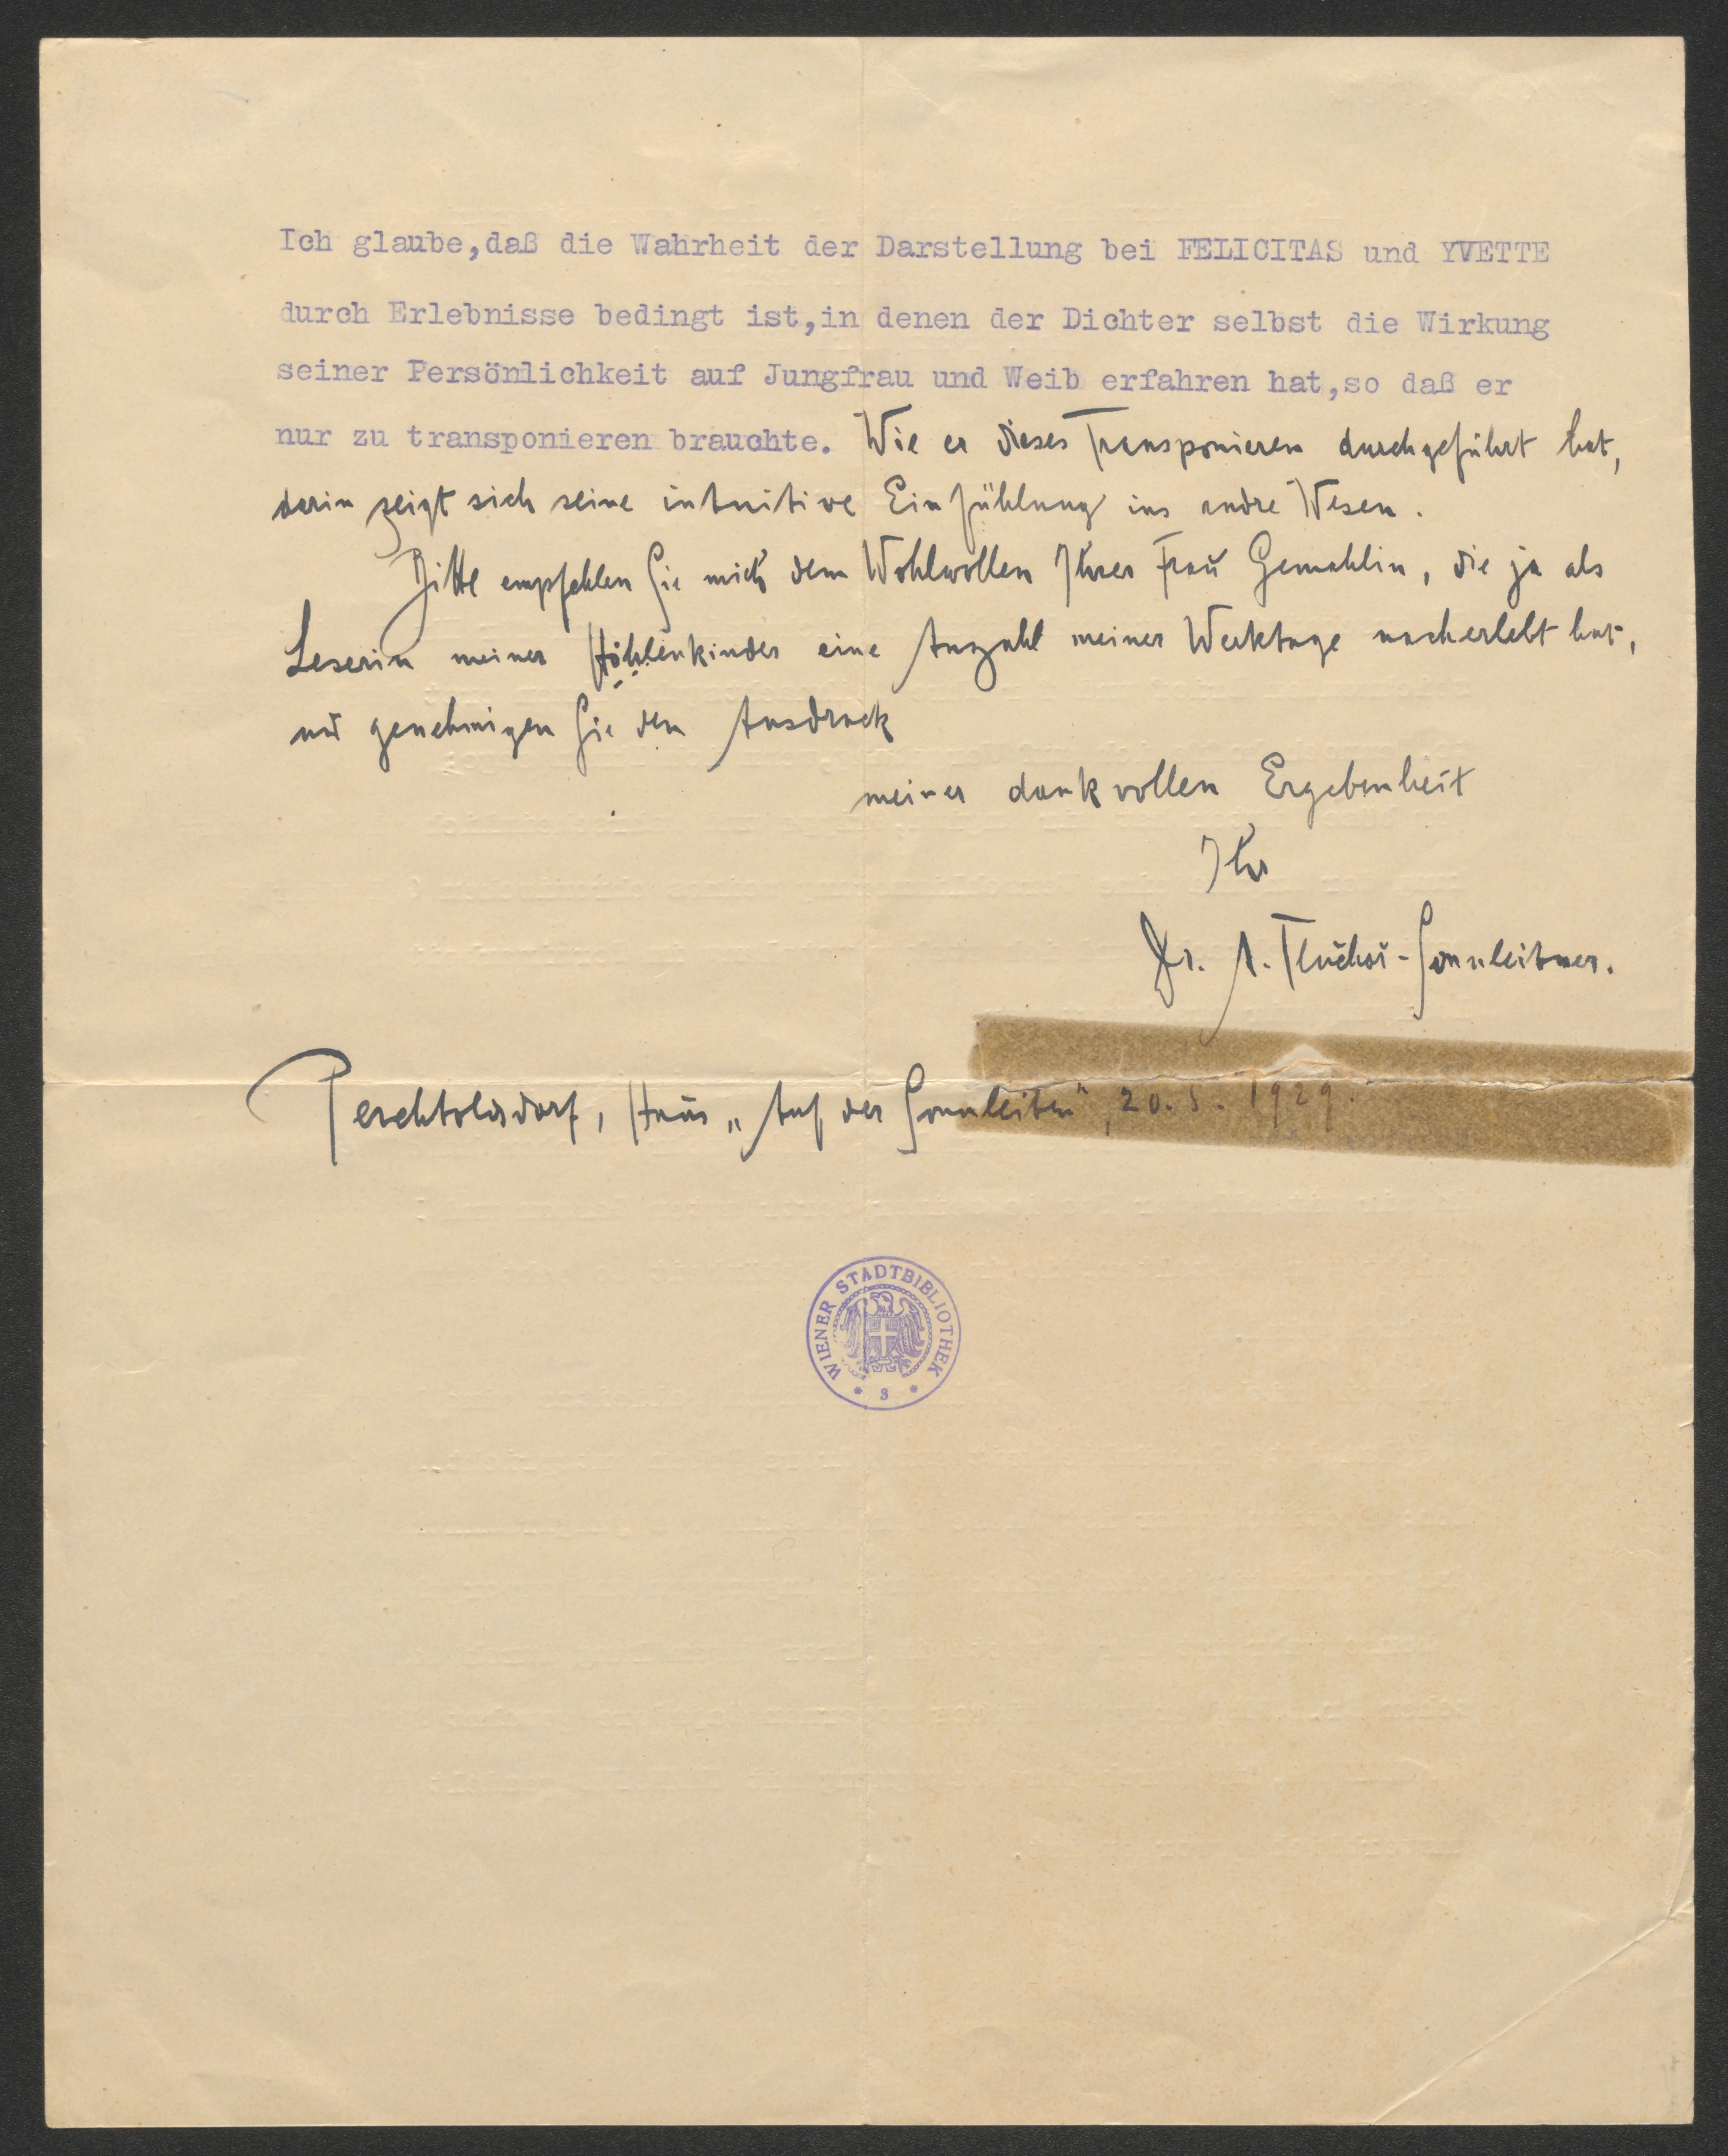 Ich glaube,daß die Wahrheit der Darstellung bei FELICITAS und YVETTE
durch Erlebnisse bedingt ist,in denen der Dichter selbst die Wirkung
seiner Persönlichkeit auf Jungfrau und Weib erfahren hat,so daß er
nur zu transponieren brauchte. Wie er dieses Transponieren durchgeführt hat,
darin zeigt sich seine intuitive Einfühlung ins andre Wesen.
Bitte empfehlen Sie mich dem Wohlwollen Ihrer Frau Gemahlin, die ja als
Leserin meiner Höhlenkinder eine Anzahl meiner Werktage nacherlebt hat,
und genehmigen Sie den Ausdruck
meiner dankvollen Ergebenheit
Ihr
Dr. A. Tlučhoř-Sonnleitner.
Perchtoldsdorf, Haus „Auf der Sonnleiten", 20. 5. 1929.
WIENER STADTBIBLIOTHEK
* 3 *